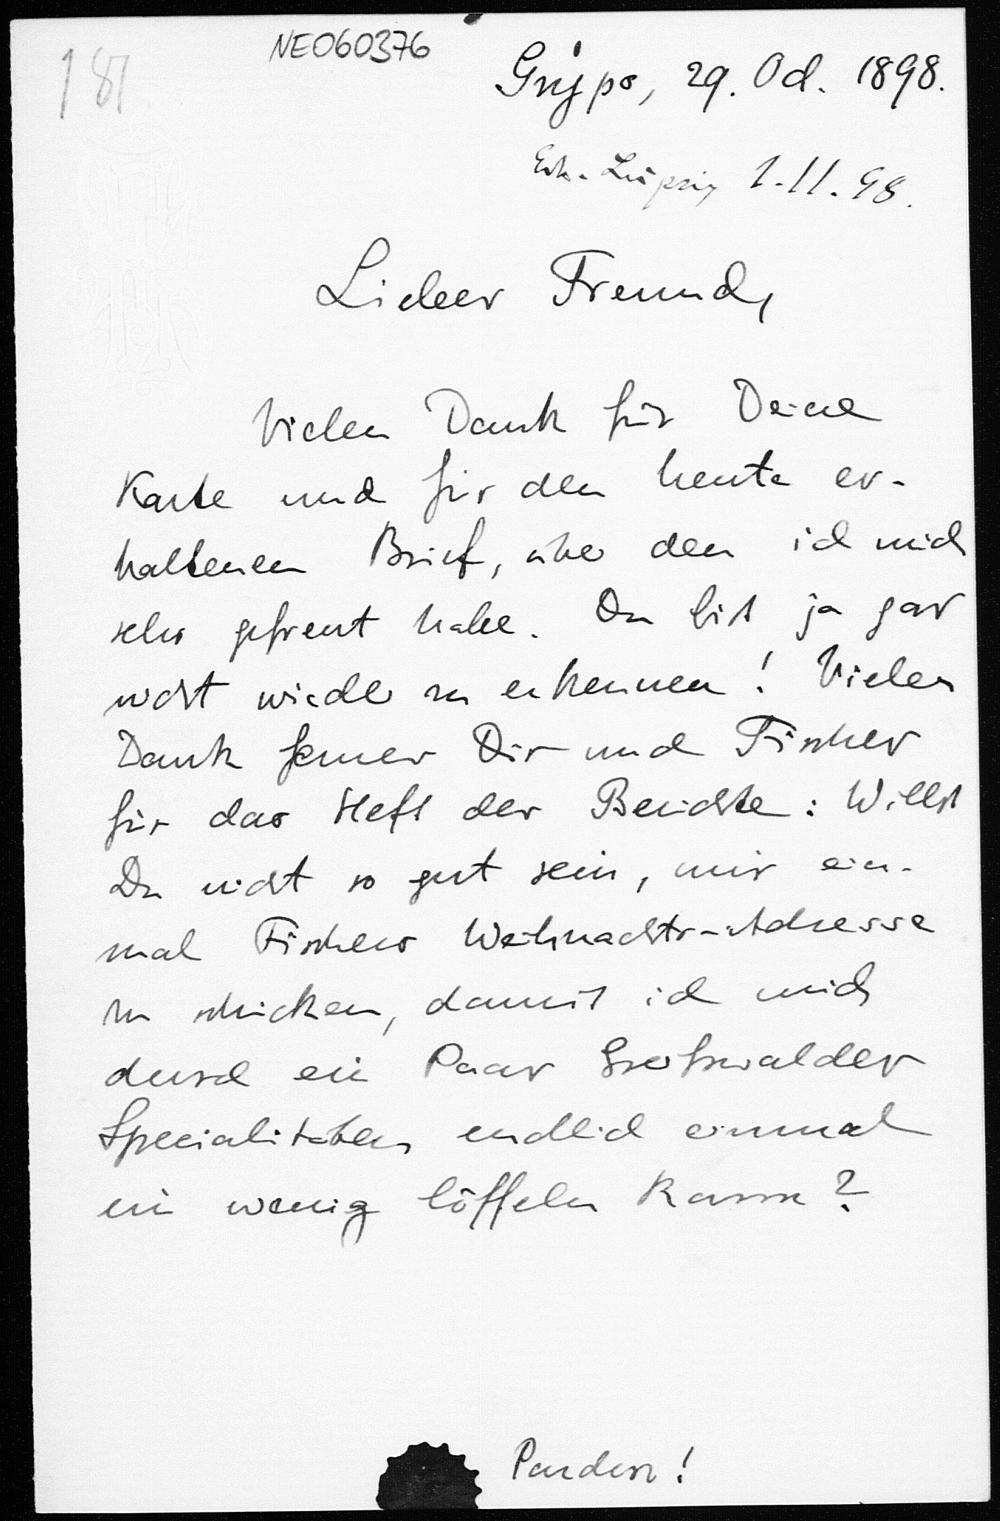 NEO60376
187
Gryps, 29. Oct. 1898.
Erh. Leipzig 1.11.98.
Lieber Freund,
Vielen Dank für Deine
Karte und für den heute er-
haltenen Brief, über den ich mich
sehr gefreut habe. Du bist ja gar
nicht wieder zu erkennen! Vielen
Dank ferner Dir und Fischer
für das Heft der Berichte: Willst
Du nicht so gut sein, mir ein-
mal Fischers Weihnachts-Adresse
zu schicken, damit ich mich
durch ein Paar Greifswalder
Specialitäten endlich einmal
ein wenig löffeln kann?
Pardon!